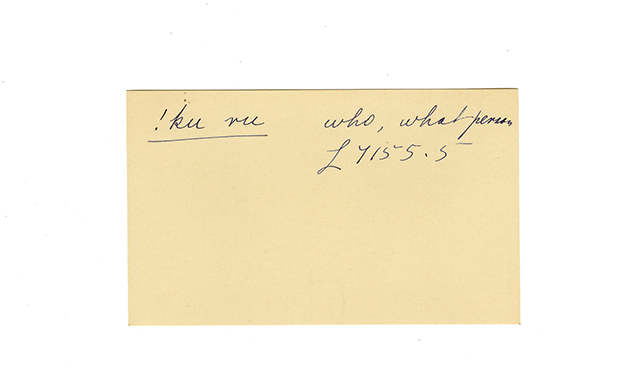 !ku ru who, what person
L 7155.5